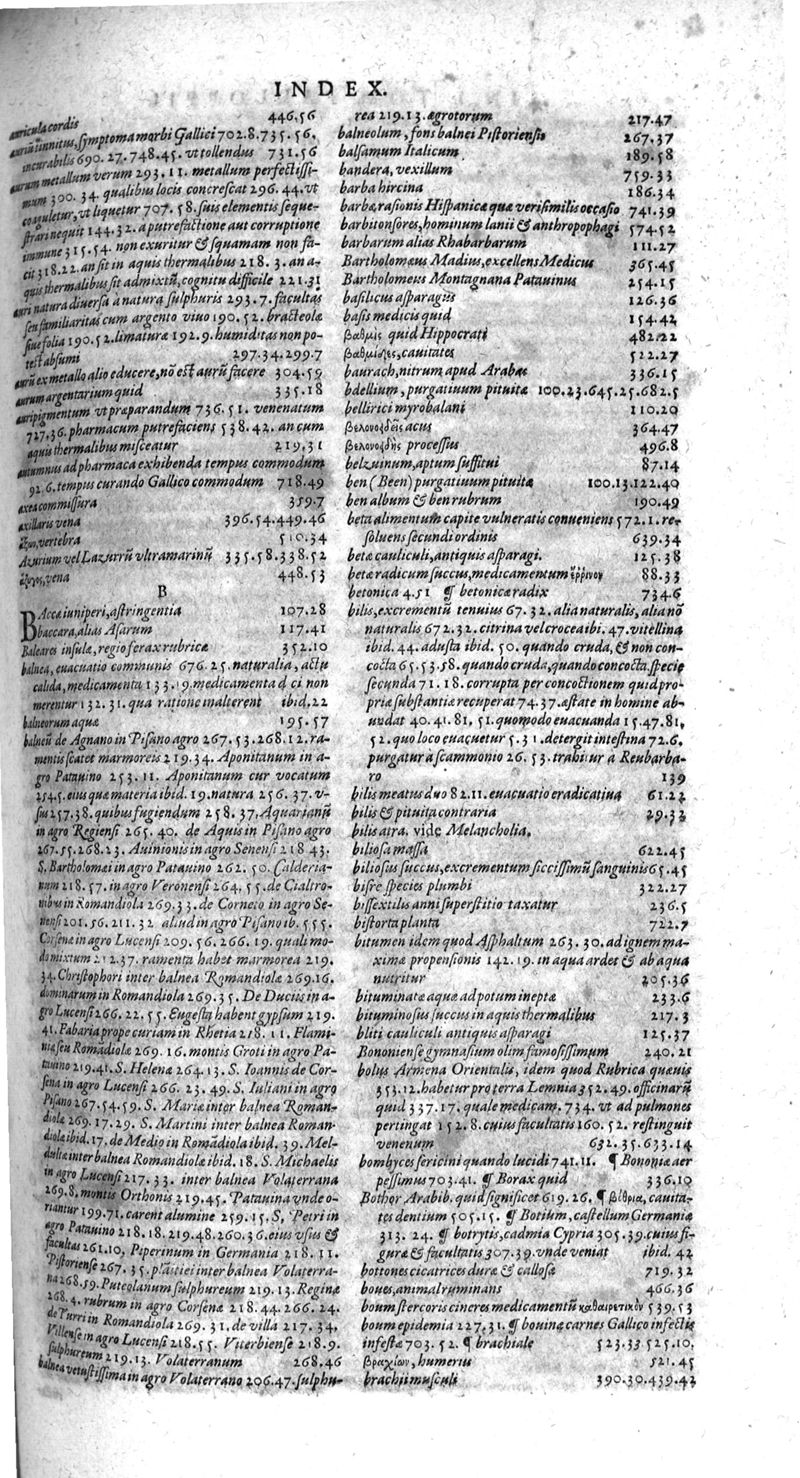 INDEX.
auricula cordis 446.56
auriũ tinnitus, symptoma morbi Gallici 702.8.735.56.
incurabilis 690.27.748.45. vt tollendus 731.56
aurum metallum verum 293.11. metallum perfectissi-
mum 300.34. qualibus locis concrescat 296.44. vt
coaguletur, vt liquetur 707.58. suis elementis seque-
strari nequit 144.32. a putrefactione aut corruptione
immune 315.54. non exuritur & squamam non fa-
cit 318.22. an sit in aquis thermalibus 218.3. an a-
quis thermalibus sit admixtũ, cognitu difficile 221.31
auri natura diuersa a natura sulphuris 293.7. facultas
seu familiaritas cum argento viuo 190.52. bracteolæ
siue folia 190.52. limaturæ 192.9. humiditas non po-
test absumi 297.34.299.7
aurũ ex metallo alio educere, nõ est aurũ facere 304.59
aurum argentarium quid 335.18
auripigmentum vt præparandum 736.51. venenatum
727.36. pharmacum putrefaciens 538.42. an cum
aquis thermalibus misceatur 219.31
autumnus ad pharmaca exhibenda tempus commodum
92.6. tempus curando Gallico commodum 718.49
axea commissura 359.7
axillaris vena 396.54.449.46
ἄξων, vertebra 510.34
Azurium vel Lazurrũ vltramarinũ 335.58.338.52
ἄζυγος, vena 448.53
B
BAccæ iuniperi, astringentia 107.28
baccara, alias Asarum 117.41
Baleares insulæ, regio ferax rubricæ 352.10
balnea, euacuatio communis 676.25. naturalia, actu
calida, medicamenta 133.19. medicamenta dici non
merentur 132.31. qua ratione inalterent ibid. 22
balneorum aquæ 195.57
balneũ de Agnano in Pisano agro 267.53.268.12. ra-
menti scatet marmoreis 219.34. Aponitanum in a-
gro Patauino 253.11. Aponitanum cur vocatum
254.5. eius quæ materia ibid. 19. natura 256.37. v-
sus 257.38. quibus fugiendum 258.37. Aquarianũ
in agro Regiensi 265.40. de Aquis in Pisano agro
267.55.268.23. Auinionis in agro Senensi 218.43.
S. Bartholomæi in agro Patauino 262.50. Calderia-
num 218.57. in agro Veronensi 264.55. de Cialtro-
nibus in Romandiola 269.33. de Corneto in agro Se-
nensi 201.56.211.32 aliud in agro Pisano ib. 555.
Corsenæ in agro Lucensi 209.56.266.19. quali mo-
do mixtum 212.37. ramenta habet marmorea 219.
34. Christophori inter balnea Romandiolæ 269.16.
dominarum in Romandiola 269.35. De Duciis in a-
gro Lucensi 266.22.55. Eugesta habent gypsum 219.
41. Fabaria prope curiam in Rhetia 218.11. Flami-
nia seu Romãdiola 269.16. montis Groti in agro Pa-
tauino 219.41. S. Helenæ 264.13. S. Ioannis de Cor-
sena in agro Lucensi 266.23.49. S. Iuliani in agro
Pisano 267.54.59. S. Mariæ inter balnea Roman-
diolæ 269.17.29. S. Martini inter balnea Roman-
diolæ ibid. 17. de Medio in Romãdiola ibid. 39. Mel-
dulæ inter balnea Romandiolæ ibid. 18. S. Michaelis
in agro Lucensi 217.33. inter balnea Volaterrana
269.8. montis Orthonis 219.45. Patauina vnde o-
riantur 199.71. carent alumine 259.15. S. Petri in
agro Patauino 218.18.219.48.260.36. eius vsus &
facultas 261.10. Piperinum in Germania 218.11.
Pistoriense 267.35. plastiei inter balnea Volaterra-
na 268.59. Puteolanum sulphureum 219.13. Reginæ
268.4. rubrum in agro Corsenæ 218.44.266.24.
de Turri in Romandiola 269.31. de villa 217.34.
Villense in agro Lucensi 218.55. Viterbiense 218.9.
sulphureum 219.13. Volaterranum 268.46
balnea vetustissima in agro Volaterrano 206.47. sulphu-
rea 219.13. ægrotorum 217.47
balneolum, fons balnei Pistoriensis 267.37
balsamum Italicum 189.58
bandera, vexillum 759.33
barba hircina 186.34
barbæ, rasionis Hispanicæ quæ verisimilis occasio 741.39
barbitonsores, hominum lanii & anthropophagi 574.52
barbarum alias Rhabarbarum 111.27
Bartholomæus Madius, excellens Medicus 365.45
Bartholomeus Montagnana Patauinus 254.15
basilicus asparagus 126.36
basis medicis quid 154.42
βαθμὶς quid Hippocrati 482.22
βαθμίδες, cauitates 522.27
baurach, nitrum, apud Arabas 336.15
bdellium, purgatiuum pituitæ 100.23.645.25.682.5
bellirici myrobalani 110.20
βελονοειδεῖς acus 364.47
βελονοειδὴς processus 496.8
belzuinum, aptum suffitui 87.14
ben (Been) purgatiuum pituitæ 100.13.122.40
ben album & ben rubrum 190.49
beta alimentum capite vulneratis conueniens 572.1. re-
soluens secundi ordinis 639.34
betæ cauliculi, antiquis asparagi. 125.38
betæ radicum succus, medicamentum ἔρρινον 88.33
betonica 4.51 ¶ betonicæ radix 734.6
bilis, excrementũ tenuius 67.32. alia naturalis, alia nõ
naturalis 672.32. citrina vel crocea ibi. 47. vitellina
ibid. 44. adusta ibid. 50. quando cruda, & non con-
cocta 65.53.58. quando cruda, quando concocta, specie
secunda 71.18. corrupta per concoctionem quid pro-
priæ substantiæ recuperat 74.37. æstate in homine ab-
undat 40.41.81.51. quomodo euacuanda 15.47.81.
52. quo loco euacuetur 5.31. detergit intestina 72.6.
purgatur a scammonio 26.53. trahitur a Reubarba-
ro 139
bilis meatus duo 82.11. euacuatio eradicatiua 61.22
bilis & pituita contraria 29.32
bilis atra, vide Melancholia.
biliosa massa 622.45
biliosus succus, excrementum siccissimũ sanguinis 65.45
bisre species plumbi 322.27
bissextilis anni superstitio taxatur 236.5
bistorta planta 722.7
bitumen idem quod Asphaltum 263.30. ad ignem ma-
ximæ propensionis 142.19. in aqua ardet & ab aqua
nutritur 205.36
bituminatæ aquæ ad potum ineptæ 233.6
bituminosus succus in aquis thermalibus 217.3
bliti cauliculi antiquis asparagi 125.37
Bononiense gymnasium olim famosissimum 240.21
bolus Armena Orientalis, idem quod Rubrica quæuis
353.12. habetur pro terra Lemnia 352.49. officinarũ
quid 337.17. quale medicam. 734. vt ad pulmones
pertingat 152.8. cuius facultatis 160.52. restinguit
venenum 632.35.633.14
bombyces sericini quando lucidi 741.11. ¶ Bononiæ aer
pessimus 703.41. ¶ Borax quid 336.10
Bothor Arabib. quid significet 619.26. ¶ βόθρια, cauita-
tes dentium 505.15. ¶ Botium, castellum Germaniæ
313.24. ¶ botrytis, cadmia Cypria 305.39. cuius fi-
guræ & facultatis 307.39. vnde veniat ibid. 42
bottones cicatrices duræ & callosæ 719.32
boues, animal ruminans 466.36
boum stercoris cineres medicamentũ καθαιρετικὸν 539.53
boum epidemia 227.31. ¶ bouinæ carnes Gallico infectis
infestæ 703.52. ¶ brachiale 523.33.525.10.
βραχίων, humerus 521.45
brachii musculi 390.30.439.42